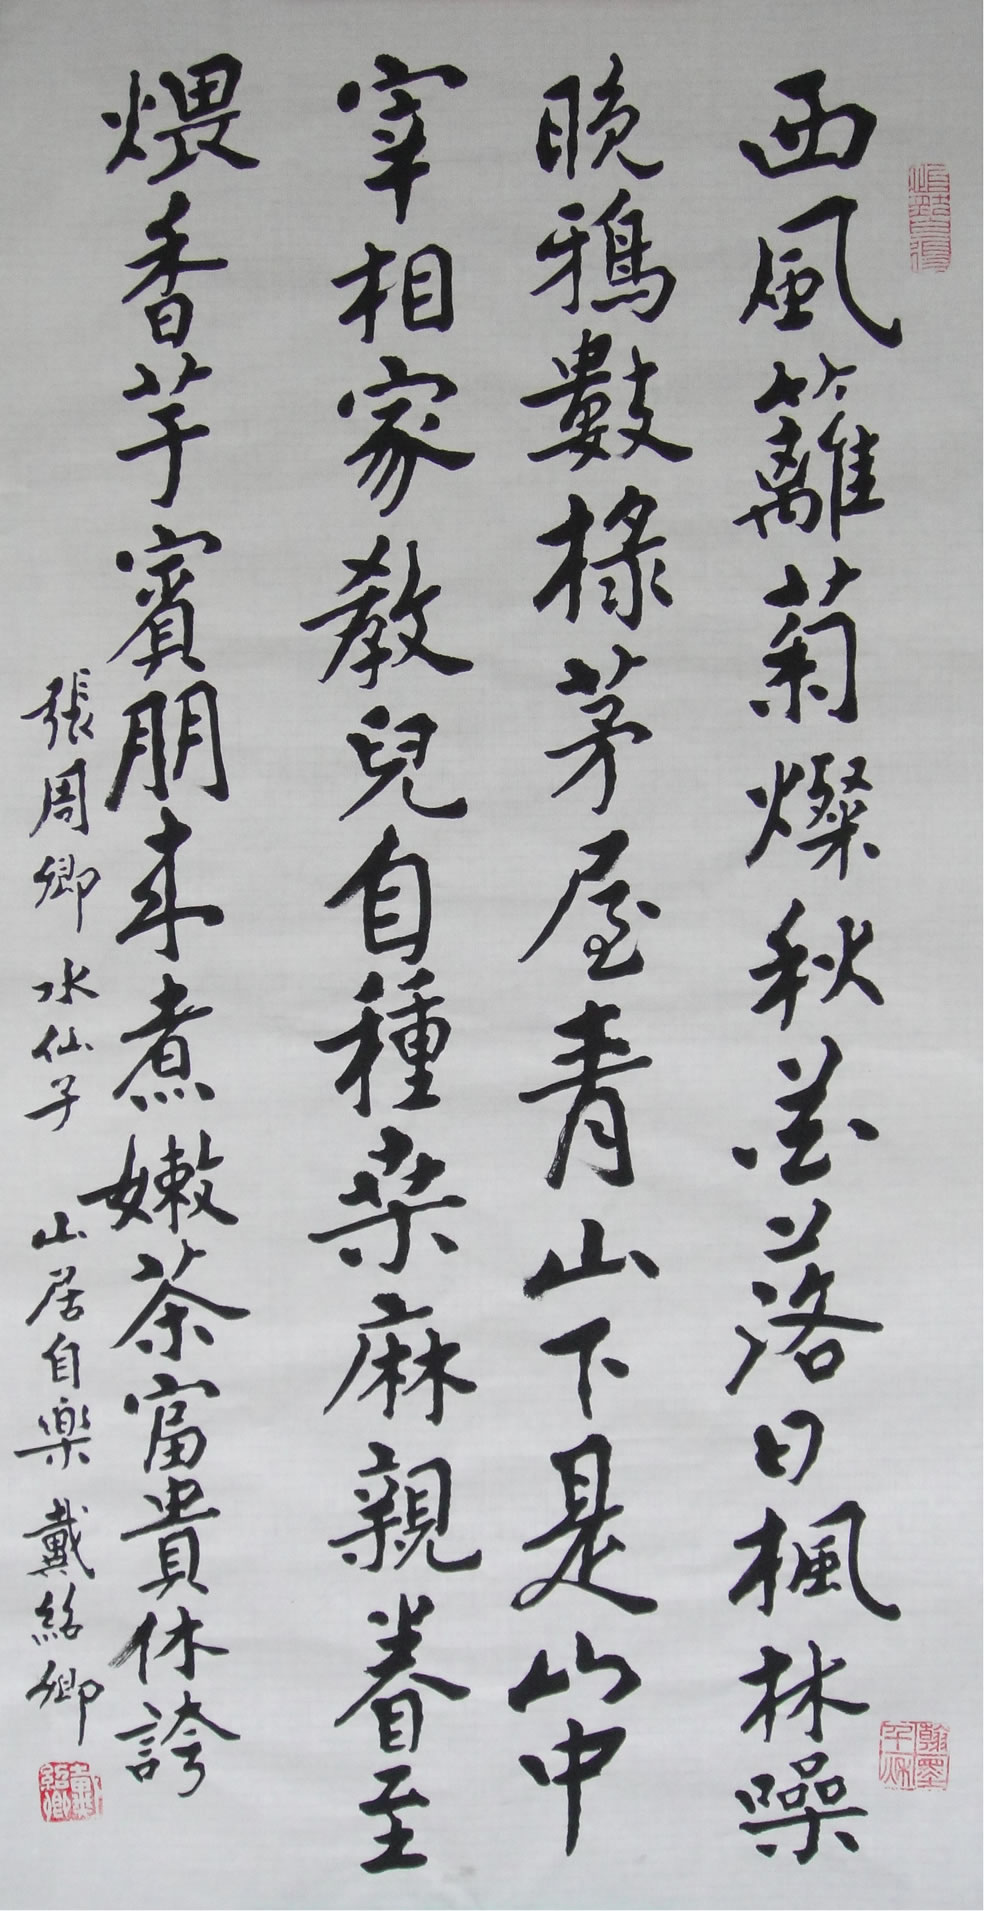 西風籬菊燦秋花落日楓林噪
晚鴉數椽茅屋青山下是山中
宰相家教兒自種桑麻親眷至
煨香芋賓朋来煮嫩茶富貴休誇
張周卿 水仙子 山居自樂 戴紹卿
翰墨千秋
戴紹卿